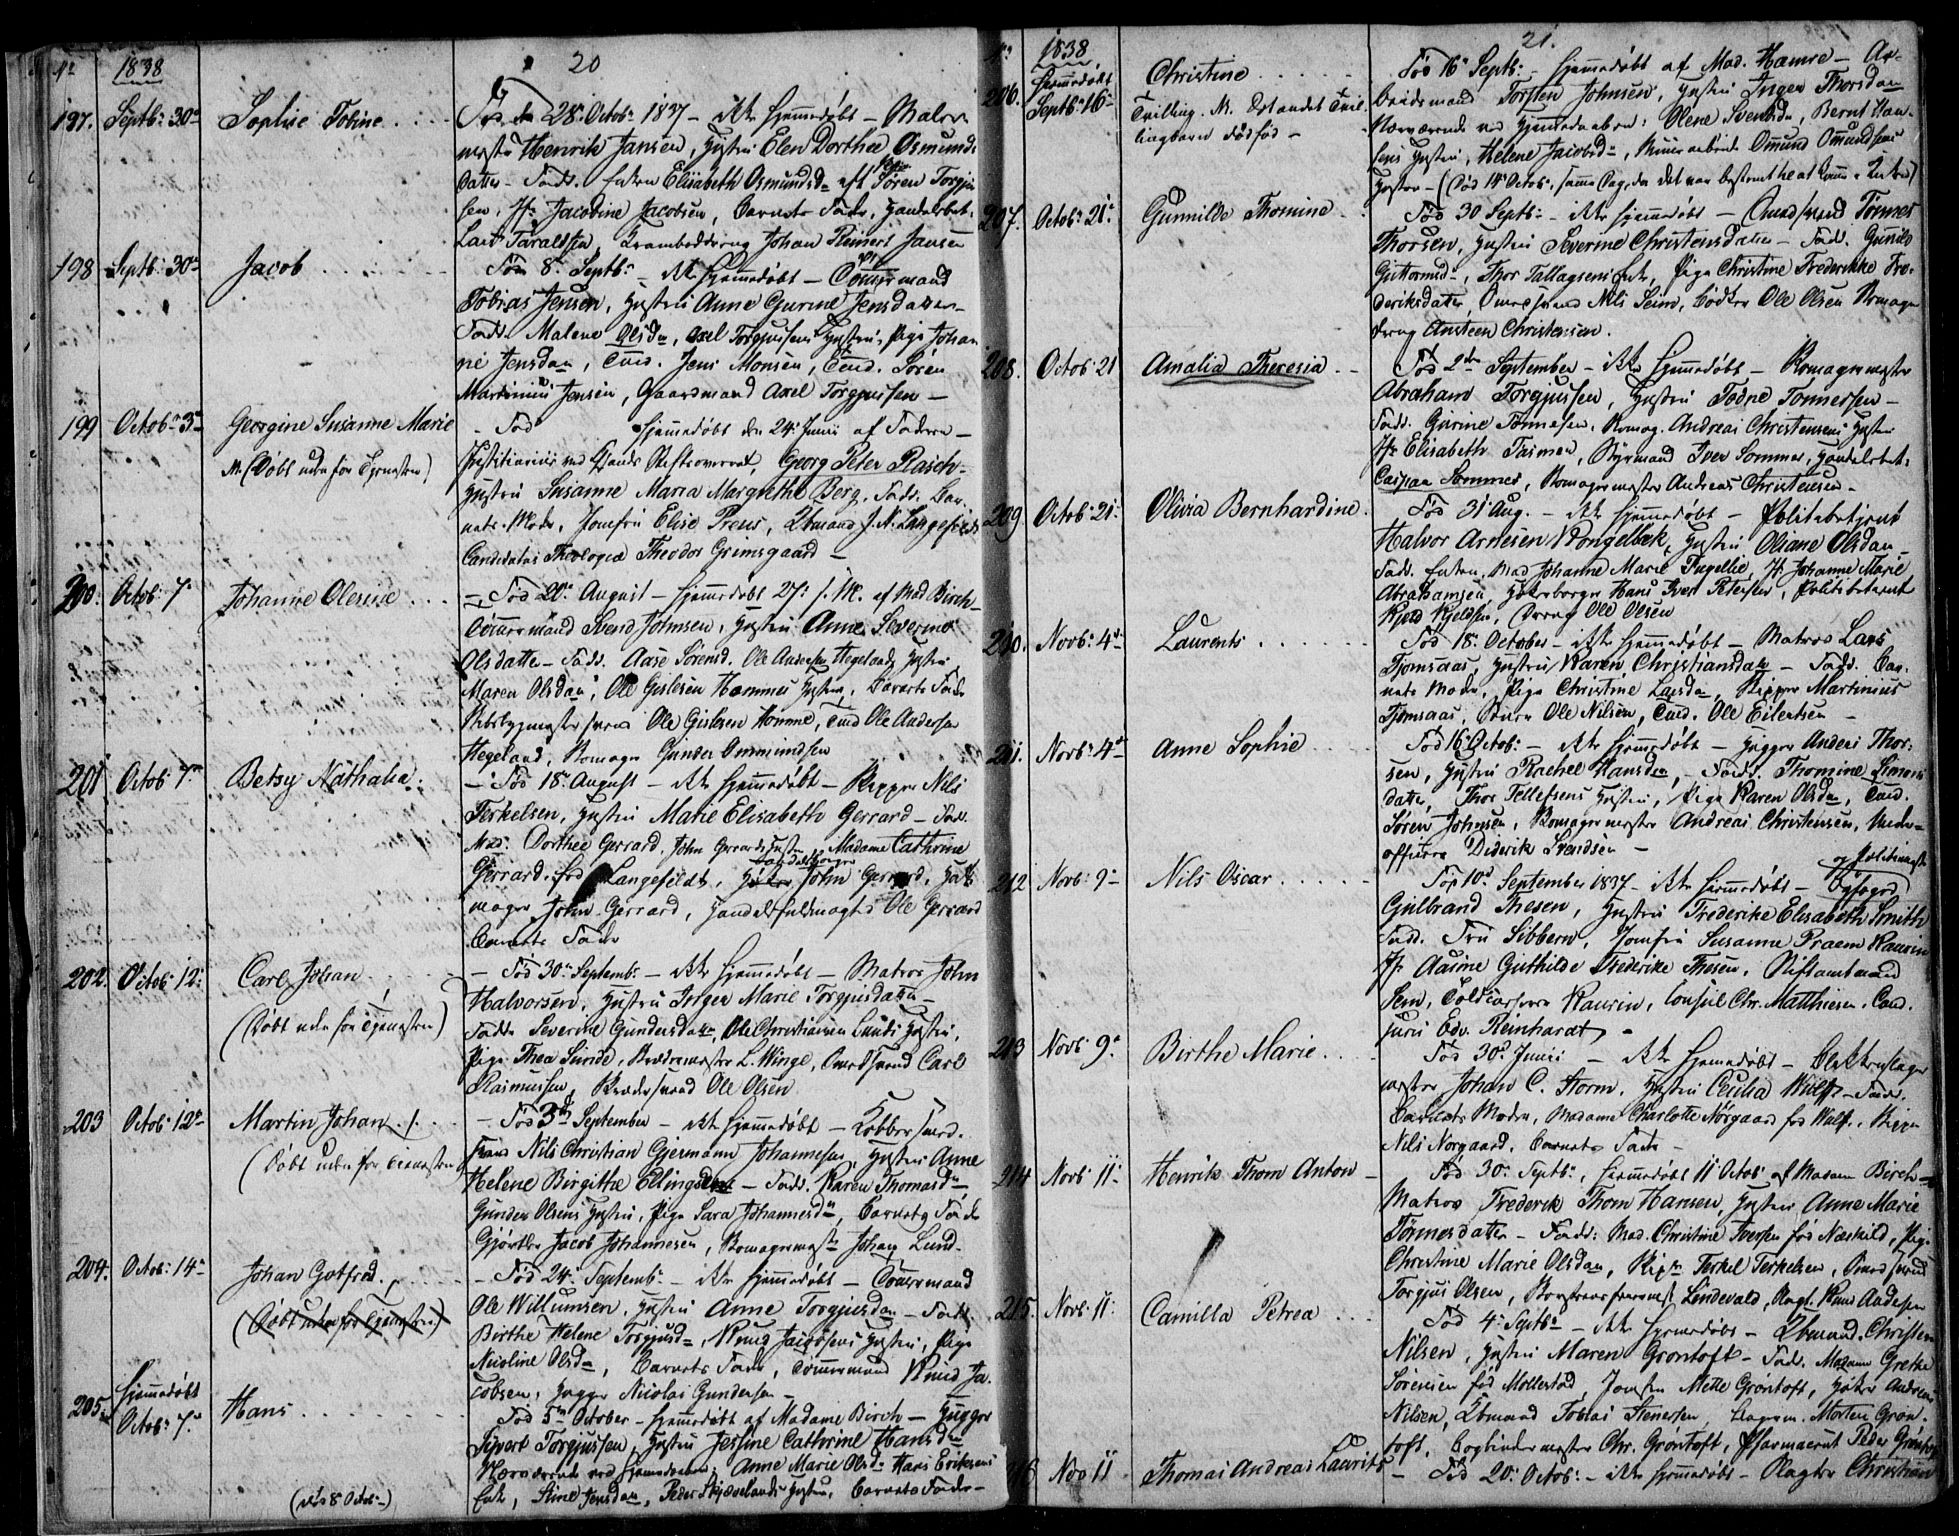 20
No 1838
197. Septb: 30te Sophie Tobine
Fød den 28de Octob: 1837 – ikke hjemmedøbt – Maler-
mester Henrik Jansen, Hustru Elen Dorthea Osmunds
datter – Fadd. Enken Elisabeth Osmundsd. Søren Torgju-
sen, Jfr. Jacobine Jacobsen, Barnets Fader, Handelsbet.
Lars Taraldsen, Kramboddreng Johan Reinert Jansen
198 Septb: 30te Jacob
Fød 8de Septb: – ikke hjemmedøbt – Tømmermand
Tobias Jensen, Hustru Anne Gurine Jensdatter –
Fadd. Malene Olsdn, Axel Torgjusens Hustru, Pige Johan
ne Jensdn, Tmd. Jens Monsen, Tmd. Søren
Martinius Jensen, Gaardmand Axel Torgjussen –
199 Octob: 3die Georgine Susanne Marie
(Døbt uden for Tjenesten)
Fød hjemmedøbt den 24de Junii af Faderen –
Justitiarius ved Stifts Overret, Georg Peter Rasch –
Hustru Susanne Maria Margrethe Berg. Fadd. Bar-
nets Moder, Jomfru Elise Preus, Kbmand J. N. Langefeldt
Candidatus Theologiæ Theodor Grimsgaard –
200. Octob: 7de Johanne Olesine
– Fød 20de August – hjemmedøbt 27de s. M. af Mad. Birch –
Tømmermand Svend Johnsen, Hustru Anne Severine
Olsdatter – Fadd. Aase Sørensd. Ole Andersen Hegelands Hustru
Maren Olsdn, Ole Gislesen Hommes Hustru, Barnets Fader
Skibsbygmestersvend Ole Gislesen Homme, Tmd Ole Andersen
Hegeland, Skomager Gunder Ommundsen
201 Octob: 7de Betsy Nathalia
– Fød 18de August – ikke hjemmedøbt – Skipper Nils
Terkelsen, Hustru Marie Elisabeth Gerrard – Fadd.
Mad. Dorthea Gerrard, John Gerrards Hustru, Madame Cathrine
Gerrard, fød Langefeldt, Handelsborger John Gerrard, Hatte-
mager John Gerrard, Handelsfuldmægtig Ole Gerrard
Barnets Fader
202. Octob: 12te Carl Johan
(Døbt uden for Tjenesten)
– Fød 30te Septemb: – ikke hjemmedøbt – Matros John
Halvorsen, Hustru Inger Marie Torgjusdatter –
Fadd. Severine Gundersdatter, Ole Christiansen Lunds Hustru,
Pige Thea Sünde, Skrædermester L. Winge, Smedsvend Carl
Rasmussen, Skrædersvend Ole Olsen
203 Octob: 12te Martin Johan
(Døbt uden for Tjenesten)
– Fød 3die September – ikke hjemmedøbt – Kobbersmed-
svend Nils Christian Gjermann Johannesen, Hustru Anne
Helene Birgithe Ellingsdn – Fadd. Karen Thomasdn
Gunder Olsens Hustru, Pige Sara Johannesdn, Barnets Fader
Gjørtler Jacob Johannesen, Skomagermester Johan Lund –
204. Octob: 14de Johan Gotfred
(Døbt uden for Tjenesten)
– Fød 24de Septemb: – ikke hjemmedøbt – Tømmermand
Ole Willumsen, Hustru Anne Torgjusdn – Fadd.
Birthe Helene Torgjusdn, Knud Jacobsens Hustru, Pige
Nicoline Olsdn, Barnets Fader, Tømmermand Knud Ja-
cobsen, Hugger Nicolai Gundersen –
205. hjemmedøbt Octob: 7de Hans
(død 8de Octob:)
Fød 5te October – hjemmedøbt af Madame Birch – Hugger
Sivert Torgjussen, Hustru Jessine Cathrine Hansdn
Nærværende ved Hjemmedaaben: Anne Marie Olsdn Hans Eriksens
Enke, Stine Jensdn, Peder Skjævelands Hustru, Barnets Fader –
21.
No 1838
206. Hjemmedøbt Septb: 16de Christine
Tvilling. NB. Det andet Tvil-
lingbarn dødfød –
Fød 16de Septb: – hjemmedøbt af Mad. Hamre – Ar-
beidsmand Torsten Johnsen, Hustru Inger Thorsdan
Nærværende ved Hjemmedaaben: Olene Svendsdn, Bernt Han-
sens Hustru, Helene Jacobsdn, Minerarbeider Omund Omundsens
Hustru – (Død 14de Octob: samme Dag, da det var bestemt til at komme i Kirken)
207. Octob: 21de Gunnilde Thomine
Fød 30 Septb: – ikke hjemmedøbt – Smedsvend Tønnes
Thorsen, Hustru Severine Christensdatter – Fadd. Gunild
Guttormsdn, Thor Tallagsens Enke, Pige Christine Frederikke Fre-
deriksdatter, Smedsvend Nils Seim, Bødker Ole Olsen Skomager
dreng Ansteen Christensen.
208. Octob: 21 Amalia Theresia
Fød 2den September – ikke hjemmedøbt – Skomagermester
Abraham Torgjussen, Hustru Todne Tonnessen –
Fadd. Gurine Tønnesen, Skomag. Andreas Christensens Hustru
Jfr Elisabeth Tasmer, Styrmand Iver Sommer, Handelsbet.
Caspar Sommer, Skomagermester Andreas Christensen –
209 Octob: 21de Olivia Bernhardine
Fød 31te Aug. – ikke hjemmedøbt – Politibetjent
Halvor Arnesen Kongelbæk, Hustru Oliane Olsdan –
Fadd. Enken Mad Johanne Marie Ingellie, Jfr Johanne Marie
Abrahamsen, Høkerborger Hans Iver Petersen, Politibetjent
Kjeld Kjeldsen, Dreng Ole Olsen
210. Novb: 4de Laurents
Fød 18de October – ikke hjemmedøbt – Matros Lars
Tjomsaas, Hustru Karen Christiansdatter – Fadd. Bar-
nets Moder, Pige Christine Larsdn, Skipper Martinius
Tjomsaas, Ole Nilsen, Tmd. Ole Eilertsen –
211. Novb: 4de Anne Sophie
Fød 16de Octob: – ikke hjemmedøbt – Hugger Anders Thor-
sen, Hustru Rachel Hansdn, – Fadd. Thomine Simons
datter, Thor Tellefsens Hustru, Pige Karen Olsdn, Tmd.
Søren Johnsen, Skomagermester Andreas Christensen, Under-
officeer Diderik Svendsen –
212 Novb: 9de Nils Oscar
Fød 10de September 1837 – ikke hjemmedøbt – Byfoged og Politimester
Gulbrand Thesen, Hustru Frederikke Elisabeth Smith
Fadd. Fru Sibbern, Jomfru Susanne Praem Kaurin
Jfr Aasine Guthilde Frederike Thesen, Stiftamtmand
Sem, Toldcasserer Kaurin, Consul Chr. Matthiesen, Cand.
juris Edv. Reinhardt –
213 Novb: 9de Birthe Marie
Fød 30te Junii – ikke hjemmedøbt – Blikkenslager
mester Johan C. Storm, Hustru Cecilia Wulff – Fadd.
Barnets Moder, Madame Charlotte Nørgaard fød Wulff, Skipper
Nils Norgaard, Barnets Fader –
214 Novb: 11te Henrik Thom Anton
Fød 30te Septb:, hjemmedøbt 11te Octob: af Madam Birch –
Matros Frederik Thom Hansen, Hustru Anne Marie
Tönnesdatter – Fadd: Mad. Christine Iversen fød Næskild, Pige
Christine Marie Olsdan, Skipr Terkel Terkelsen, Smedsvend
Torgjus Olsen, Lindevald, Knud Andersen
215. Novb: 11te Camilla Petrea
Fød 4de Septbr – ikke hjemmedøbt – Kbmand Christen
Nilsen, Hustru Maren Grontoft – Fadd. Madame Grethe
Sorensen fød Mollerstad, Jomfru Mette Grøntoft, Høker Andreas
Nilsen, Kbmand Tobias Stenersen, Morten Grøn-
toft, Bogbindermester Chr. Grøntoft, Pharmaceut Peder Grøntoft
216 Nov 11 Thomas Andreas Laurits
– Fød 20de Octob: – ikke hjemmedøbt – Slagter Christian